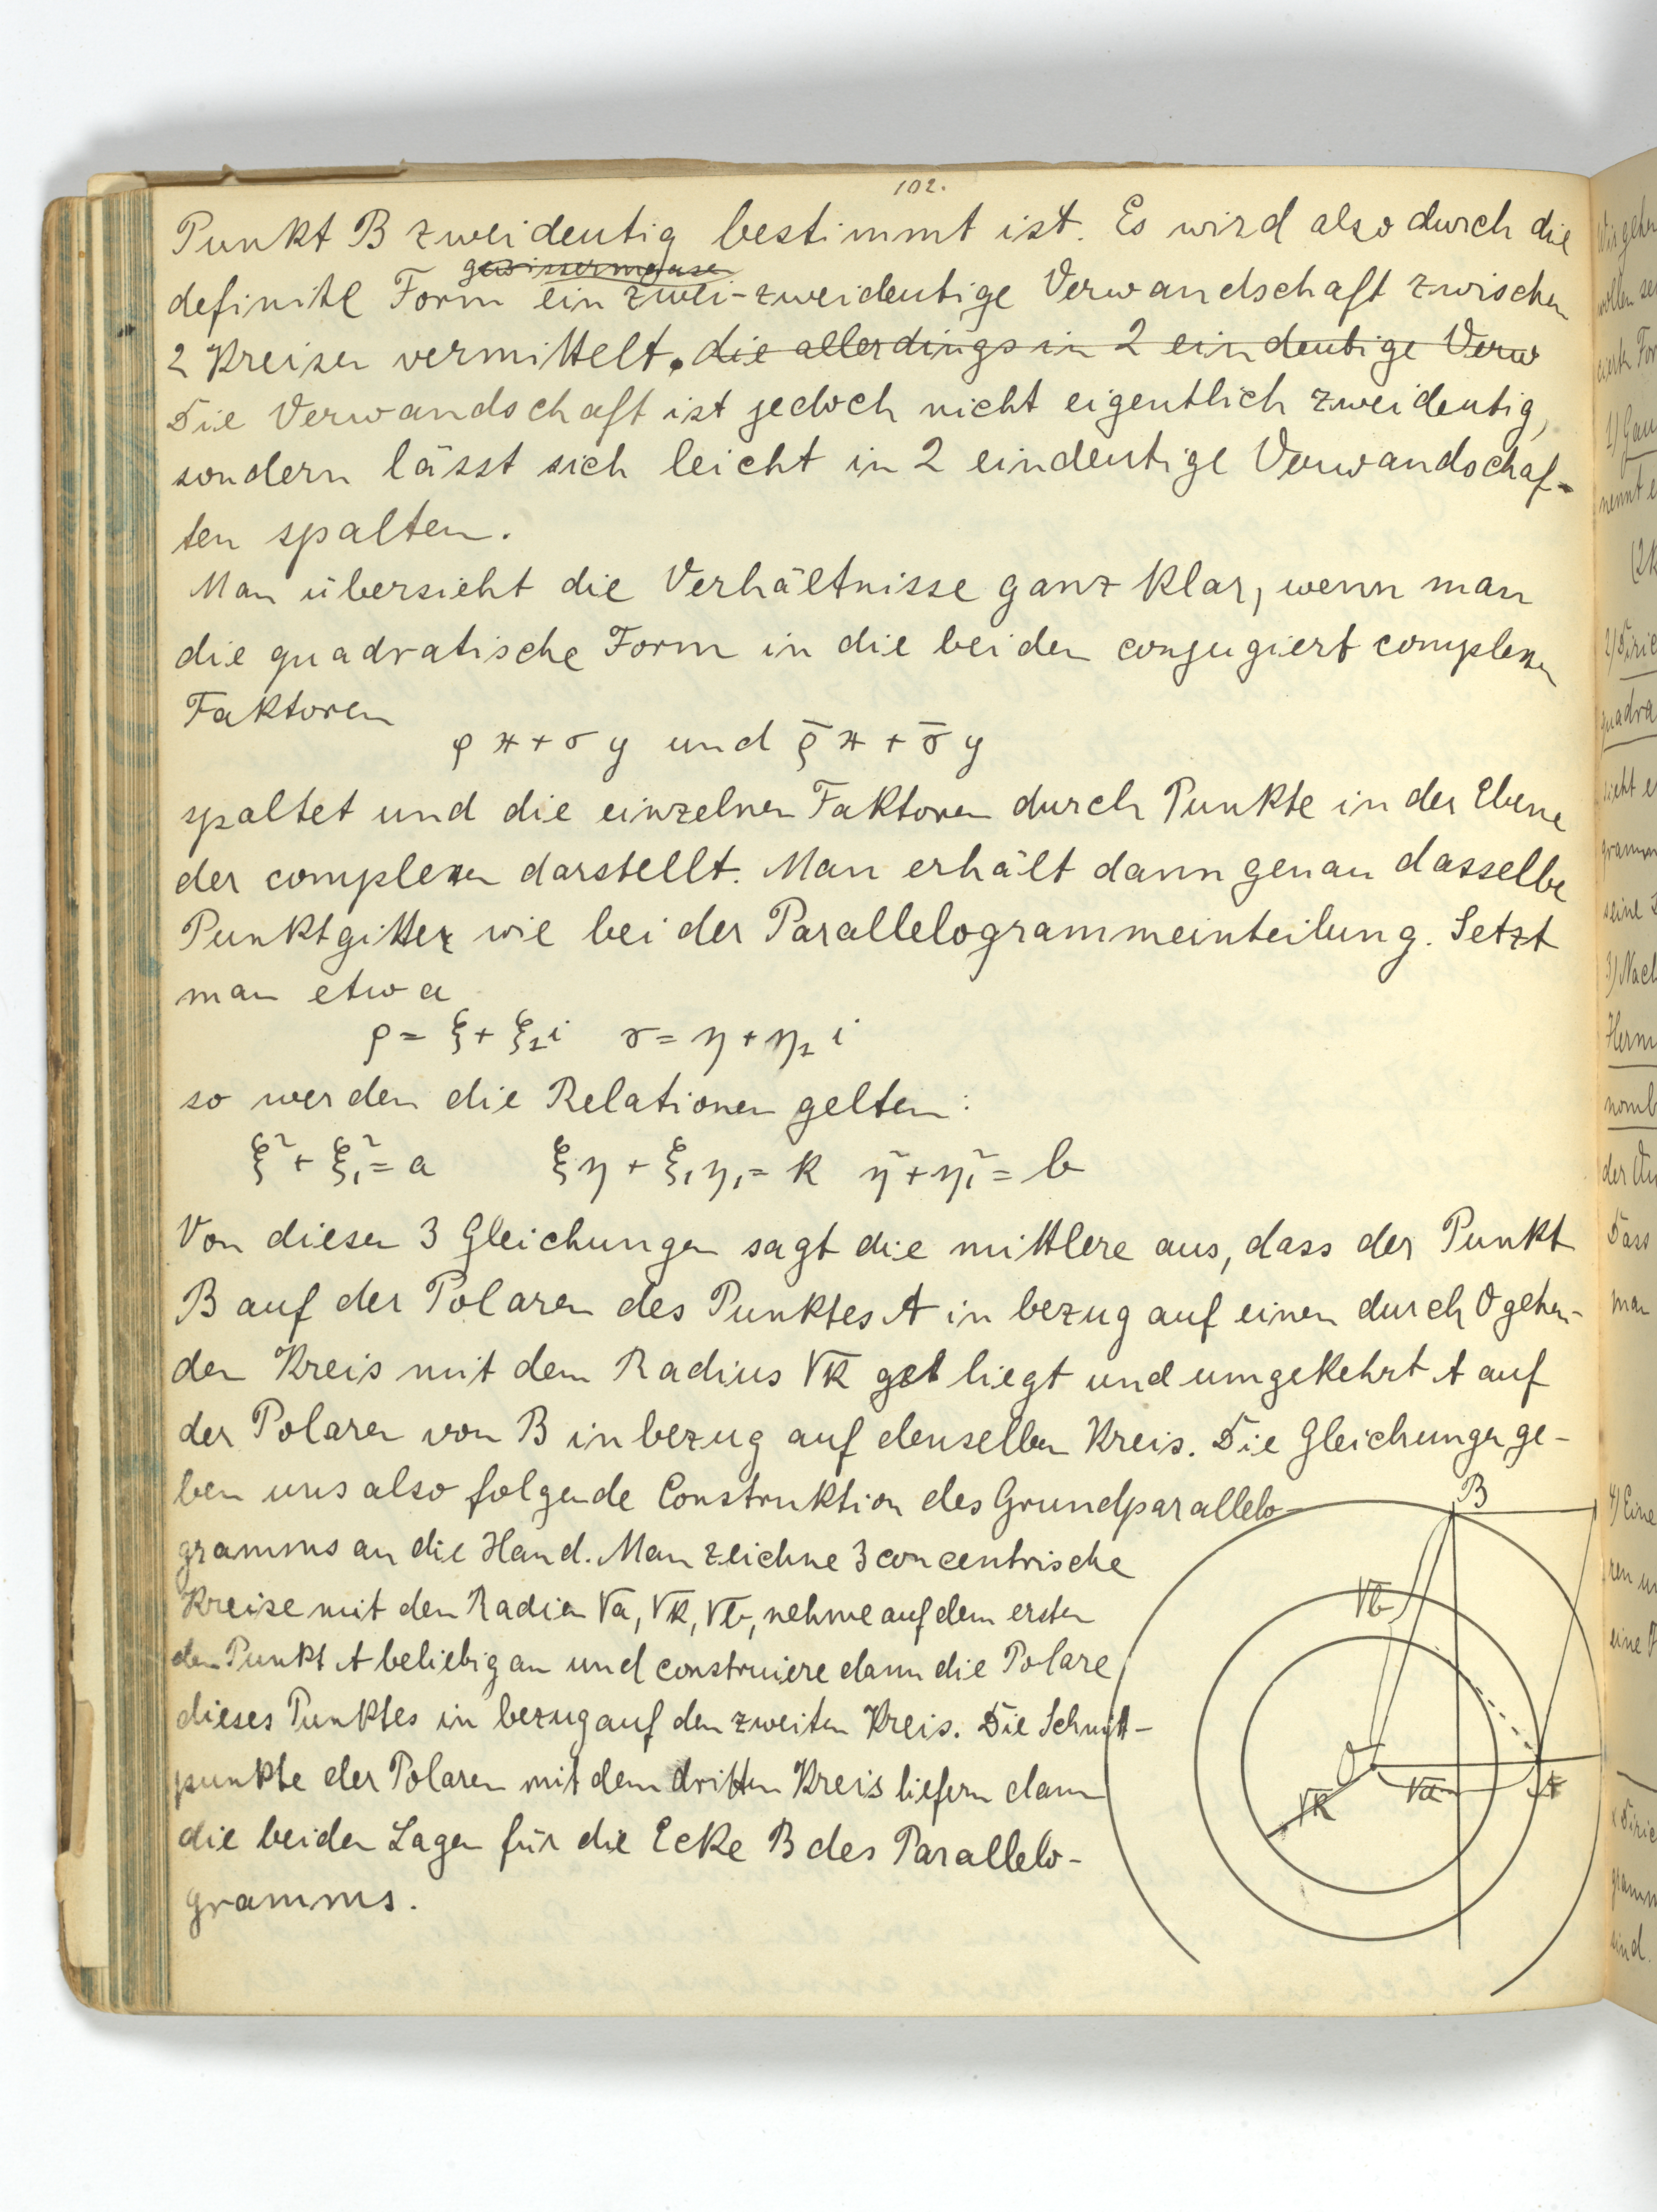 102.
Punkt B zweideutig bestimmt ist. Es wird also durch die
gewissermasen
definite Form ein zwei-zweideutige Verwandschaft zwischen
2 Kreisen vermittelt. die allerdings in 2 eindeutige Verw
Die Verwandschaft ist jedoch nicht eigentlich zweideutig,
sondern lässt sich leicht in 2 eindeutige Verwandschaf-
ten spalten.
Man übersieht die Verhältnisse ganz klar, wenn man
die quadratische Form in die beiden conjugiert complexen
Faktoren
ρx + σy und ρ̄x + σ̄y
spaltet und die einzelnen Faktoren durch Punkte in der Ebene
der complexen darstellt. Man erhält dann genau dasselbe
Punktgitter wie bei der Parallelogrammeinteilung. Setzt
man etwa
ρ = ξ + ξ₁i σ = η + η₁i
so werden die Relationen gelten:
ξ² + ξ₁² = a ξη + ξ₁η₁ = k η² + η₁² = b
Von diesen 3 Gleichungen sagt die mittlere aus, dass der Punkt
B auf der Polaren des Punktes A in bezug auf einen durch O gehen-
den Kreis mit dem Radius √k liegt und umgekehrt A auf
der Polaren von B in bezug auf denselben Kreis. Die Gleichungen ge-
ben uns also folgende Construktion des Grundparallelo-
gramms an die Hand. Man zeichne 3 concentrische
Kreise mit den Radien √a, √k, √b, nehme auf dem ersten
den Punkt A beliebig an und construiere dann die Polare
dieses Punktes in bezug auf den zweiten Kreis. Die Schnitt-
punkte der Polaren mit dem dritten Kreis liefern dann
die beiden Lagen für die Ecke B des Parallelo-
gramms.
B
√b
O
√a
A
√k